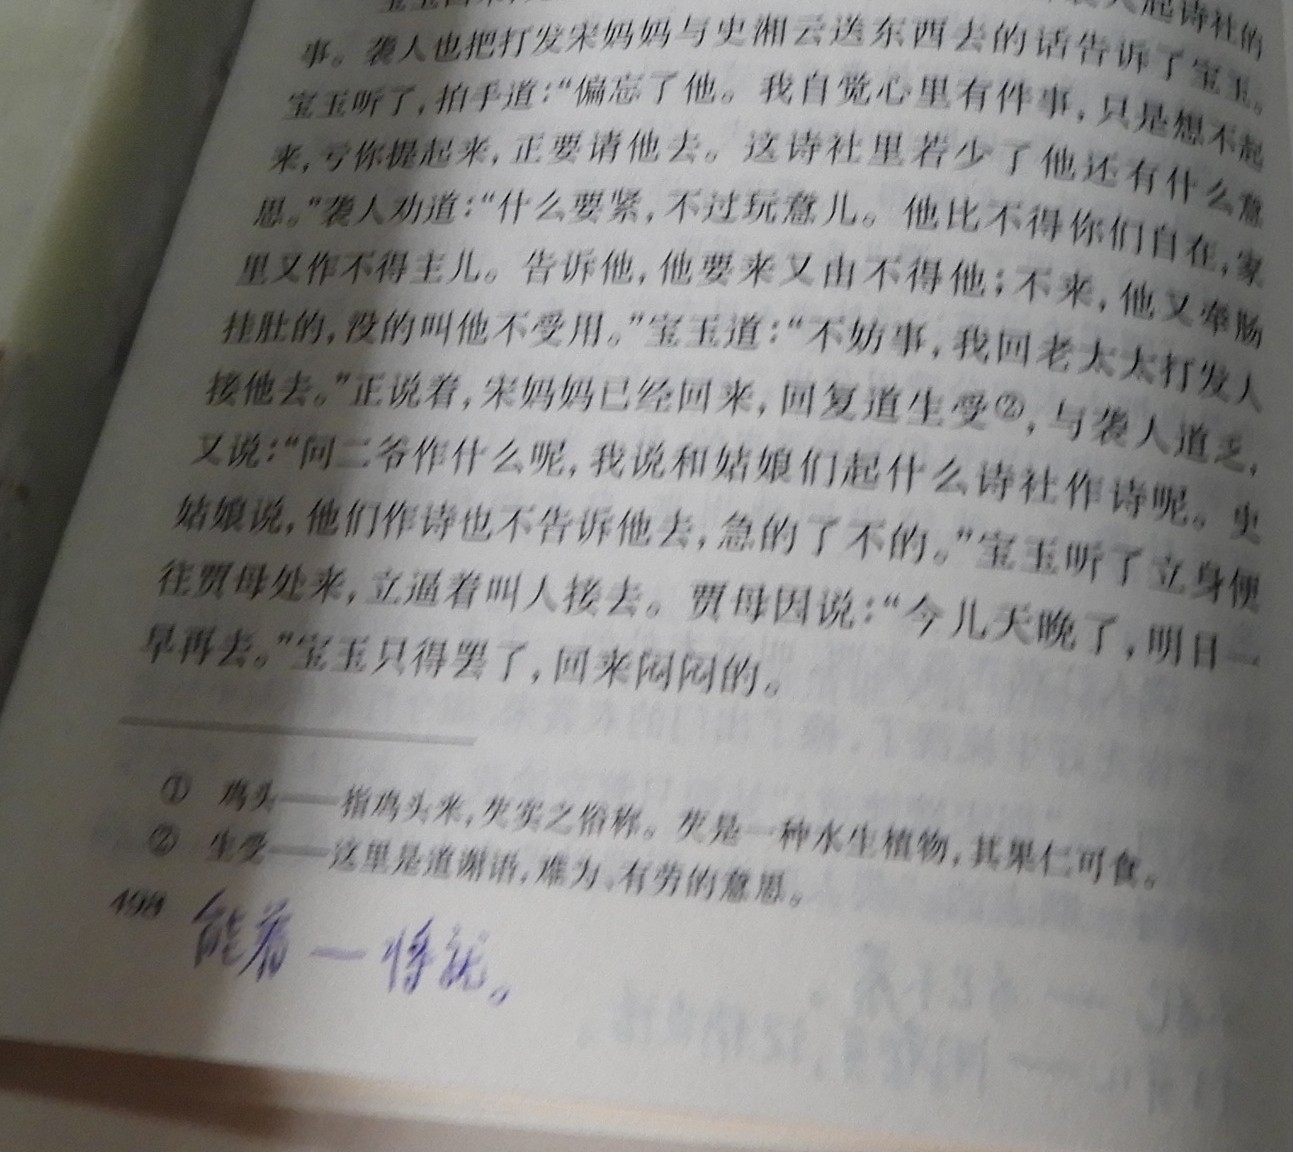 起诗社的
事。袭人也把打发宋妈妈与史湘云送东西去的话告诉了宝玉。
宝玉听了,拍手道:“偏忘了他。我自觉心里有件事,只是想不起
来,亏你提起来,正要请他去。这诗社里若少了他还有什么意
思。”袭人劝道:“什么要紧,不过玩意儿。他比不得你们自在,家
里又作不得主儿。告诉他,他要来又由不得他;不来,他又牵肠
挂肚的,没的叫他不受用。”宝玉道:“不妨事,我回老太太打发人
接他去。”正说着,宋妈妈已经回来,回复道生受②,与袭人道乏,
又说:“问二爷作什么呢,我说和姑娘们起什么诗社作诗呢。史
姑娘说,他们作诗也不告诉他去,急的了不的。”宝玉听了立身便
往贾母处来,立逼着叫人接去。贾母因说:“今儿天晚了,明日一
早再去。”宝玉只得罢了,回来闷闷的。
① 鸡头——指鸡头米,芡实之俗称。芡是一种水生植物,其果仁可食。
② 生受——这里是道谢语,难为、有劳的意思。
498
能着 — 将就。